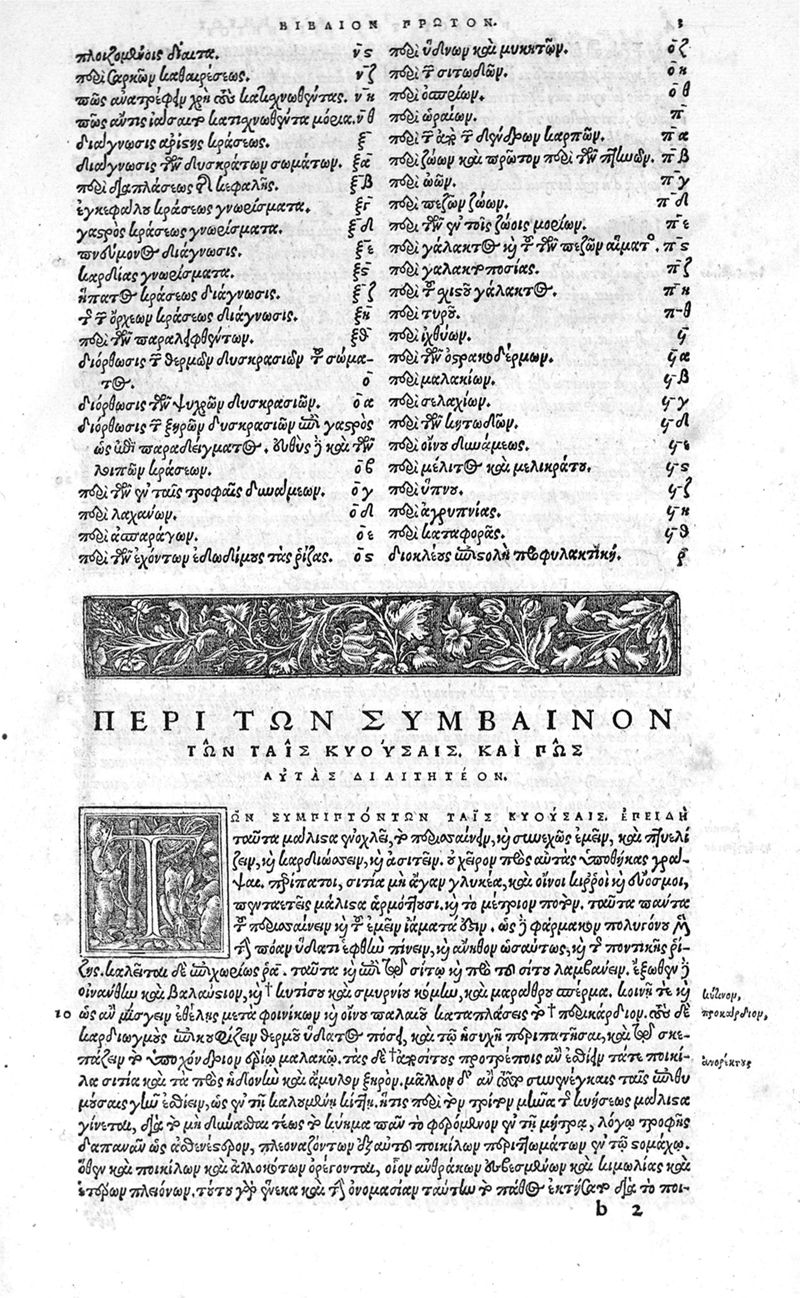 ΒΙΒΛΙΟΝ ΠΡΩΤΟΝ.
πλοιζομένοις δίαιτα. νϛ
περὶ σαρκῶν καθαιρέσεως. νζ
πῶς ἀνατρέφειν χρὴ τοὺς κατισχνωθέντας. νη
πῶς ἄν τις ἰάσαιτο κατισχνωθέντα μόρια. νθ
διάγνωσις ἀρίστης κράσεως. ξ
διάγνωσις τῶν δυσκράτων σωμάτων. ξα
περὶ διαπλάσεως τῆς κεφαλῆς. ξβ
ἐγκεφάλου κράσεως γνωρίσματα. ξγ
γαστρὸς κράσεως γνωρίσματα. ξδ
πνεύμονος διάγνωσις. ξε
καρδίας γνωρίσματα. ξϛ
ἥπατος κράσεως διάγνωσις. ξζ
τῆς τῶν ὄρχεων κράσεως διάγνωσις. ξη
περὶ τῶν παραλειφθέντων. ξθ
διόρθωσις τῶν θερμῶν δυσκρασιῶν τοῦ σώμα-
τος. ο
διόρθωσις τῶν ψυχρῶν δυσκρασιῶν. οα
διόρθωσις τῶν ξηρῶν δυσκρασιῶν ἐπὶ γαστρὸς
ὡς ἐπὶ παραδείγματος. εὐθὺς δὲ καὶ τῶν
λοιπῶν κράσεων. οβ
περὶ τῶν ἐν ταῖς τροφαῖς δυνάμεων. ογ
περὶ λαχάνων. οδ
περὶ ἀσπαράγων. οε
περὶ τῶν ἐχόντων ἐδωδίμους τὰς ῥίζας. οϛ
περὶ ὕδνων καὶ μυκητῶν. οζ
περὶ τῶν σιτωδῶν. οη
περὶ ὀσπρίων. οθ
περὶ ὡραίων. π
περὶ τῶν ἀπὸ τῶν δένδρων καρπῶν. πα
περὶ ζώων καὶ πρῶτον περὶ τῶν πτηνῶν. πβ
περὶ ὠῶν. πγ
περὶ πεζῶν ζώων. πδ
περὶ τῶν ἐν τοῖς ζώοις μορίων. πε
περὶ γάλακτος καὶ τοῦ τῶν πεζῶν αἵματος. πϛ
περὶ γαλακτοποσίας. πζ
περὶ τοῦ σχιστοῦ γάλακτος. πη
περὶ τυροῦ. πθ
περὶ ἰχθύων. ϟ
περὶ τῶν ὀστρακοδέρμων. ϟα
περὶ μαλακίων. ϟβ
περὶ σελαχίων. ϟγ
περὶ τῶν κητωδῶν. ϟδ
περὶ οἴνου δυνάμεως. ϟε
περὶ μέλιτος καὶ μελικράτου. ϟϛ
περὶ ὕπνου. ϟζ
περὶ ἀγρυπνίας. ϟη
περὶ καταφορᾶς. ϟθ
διοκλέους ἐπιστολὴ προφυλακτική. ρ
ΠΕΡΙ ΤΩΝ ΣΥΜΒΑΙΝΟΝ
ΤΩΝ ΤΑΙΣ ΚΥΟΥΣΑΙΣ. ΚΑΙ ΠΩΣ
ΑΥΤΑΣ ΔΙΑΙΤΗΤΕΟΝ.
ΤΩΝ ΣΥΜΠΙΠΤΟΝΤΩΝ ΤΑΙΣ ΚΥΟΥΣΑΙΣ. ΕΠΕΙΔΗ
ταῦτα μάλιστα ἐνοχλεῖ, τὸ περισσαίνειν, καὶ συνεχῶς ἐμεῖν, καὶ πτυελί
ζειν, καὶ καρδιώσσειν, καὶ ἀσιτεῖν. οὐ χεῖρον πρὸς αὐτὰς ὑποθήκας γρά-
ψαι. περίπατοι, σιτία μὴ ἄγαν γλυκέα, καὶ οἶνοι κιρροὶ καὶ εὐοσμοι,
πενταετεῖς μάλιστα ἁρμόττουσι. καὶ τὸ μέτριον ποτόν. ταῦτα πάντα
τοῦ περισσαίνειν καὶ τοῦ ἐμεῖν ἰάματά ἐστιν. ὡς δὲ φάρμακον πολυγόνου μὲν
τὴν πόαν ὕδατι ἑφθὴν πίνειν, καὶ ἄνηθον ὡσαύτως, καὶ τῆς ποντικῆς ῥί-
ζης. καλεῖται δὲ ἐπιχωρίως ῥᾶ. ταῦτα καὶ ἐπὶ τῷ σίτῳ καὶ πρὸ τοῦ σίτου λαμβάνειν. ἔξωθεν δὲ
οἰνάνθην καὶ βαλαύστιον, καὶ † κυτίσου καὶ σμυρνίου κόμην, καὶ μαράθρου σπέρμα. κοινῇ τε καὶ
κύτινον,
10 ὡς ἂν μίσγειν ἐθέλῃς μετὰ φοινίκων καὶ οἴνου παλαιοῦ καταπλάσεις τὸ † περικάρδιον. τοὺς δὲ
προκάρδιον,
καρδιωγμοὺς ἐπικουφίζειν θερμοῦ ὕδατος πόσει, καὶ τῷ ἡσυχῇ περιπατῆσαι, καὶ τῷ σκε-
πάζειν τὸ ὑποχόνδριον ἐρίῳ μαλακῷ. τὰς δὲ † ἀποσίτους προτρέποις ἂν ἐσθίειν τά τε ποικί-
ἀνορέκτους
λα σιτία καὶ τὰ πρὸς ἡδονὴν καὶ ἄμυλον ξηρόν. μᾶλλον δ' ἂν τοῦτο συνενέγκαις ταῖς ἐπιθυ
μούσαις γῆν ἐσθίειν, ὡς ἐν τῇ καλουμένῃ κίττῃ. ἥτις περὶ τὸν τρίτον μῆνα τῆς κυήσεως μάλιστα
γίνεται, διὰ τὸ μὴ δύνασθαι τέως τὸ κύημα πᾶν τὸ φερόμενον ἐν τῇ μήτρᾳ, λόγῳ τροφῆς
δαπανᾶν ὡς ἀσθενέστερον, πλεοναζόντων διὰ τοῦτο ποικίλων περιττωμάτων ἐν τῷ στομάχῳ.
ὅθεν καὶ ποικίλων καὶ ἀλλοκότων ὀρέγονται, οἷον ἀνθράκων ἐσβεσμένων καὶ κιμωλίας καὶ
ἑτέρων πλειόνων. τούτου γὰρ ἕνεκα καὶ τὴν ὀνομασίαν ταύτην τὸ πάθος ἐκτήσατο διὰ τὸ ποι-
b 2